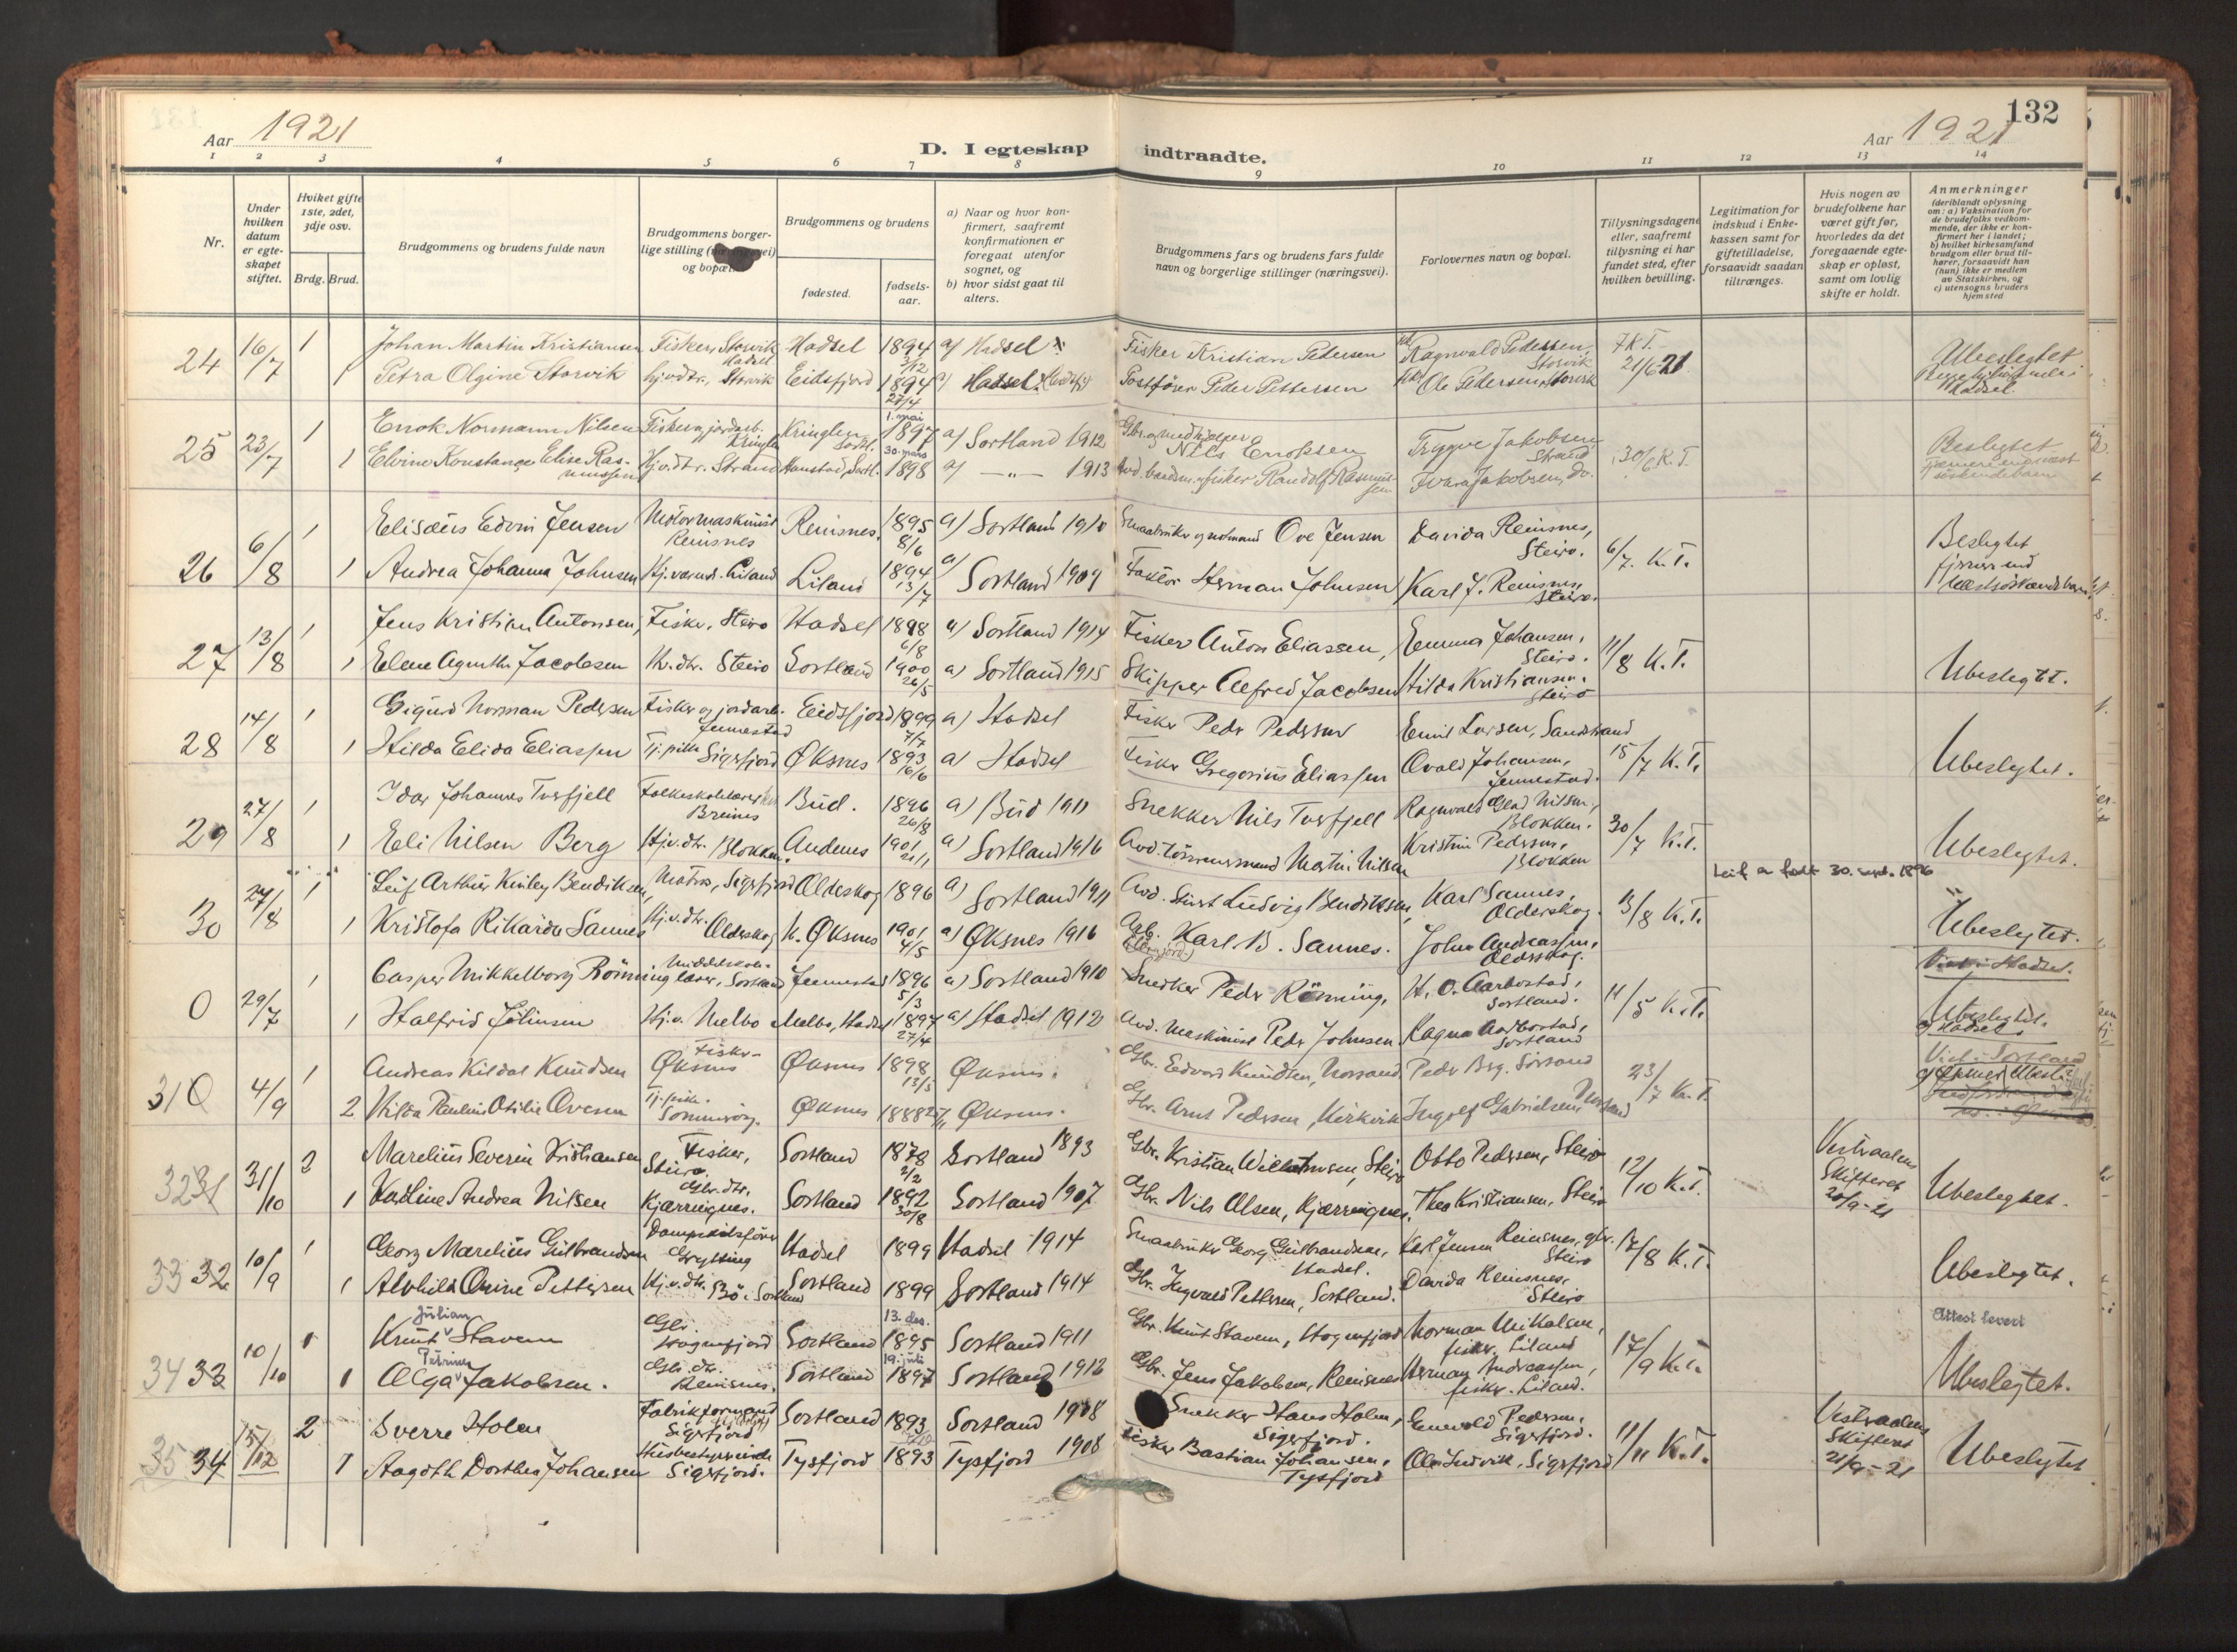 Aar 1921
D. I egteskap indtraadte.
Aar 1921
132
1 2 3 4 5 6 7 8 9 10 11 12 13 14
Nr.
Under hvilken datum er egteskapet stiftet.
Hviket gifte 1ste, 2det, 3dje osv.
Brdg. Brud.
Brudgommens og brudens fulde navn
Brudgommens borgerlige stilling (næringsvei) og bopæl.
Brudgommens og brudens
fødested.
fødselsaar.
a) Naar og hvor konfirmert, saafremt konfirmationen er foregaat utenfor sognet, og
b) hvor sidst gaat til alters.
Brudgommens fars og brudens fars fulde navn og borgerlige stillinger (næringsvei).
Forlovernes navn og bopæl.
Tillysningsdagene eller, saafremt tillysning ei har fundet sted, efter hvilken bevilling.
Legitimation for indskud i Enkekassen samt for giftetilladelse, forsaavidt saadan tiltrænges.
Hvis nogen av brudefolkene har været gift før, hvorledes da det foregaaende egteskap er opløst, samt om lovlig skifte er holdt.
Anmerkninger
(deriblandt oplysning om: a) Vaksination for de brudefolks vedkommende, der ikke er konfirmert her i landet; b) hvilket kirkesamfund brudgom eller brud tilhører, forsaavidt han (hun) ikke er medlem av Statskirken, og c) utensogns bruders hjemsted
24 16/7 1 Johan Martin Kristiansen Fisker, Storvik Hadsel Hadsel 1894 7/12 a) Hadsel Fisker Kristian Pedersen Ragnvald Pedersen, Storvik 7 K.T. 21/6 21 Ubeslegtet
1 Petra Olgine Storvik hjv.dtr., Storvik Eidsfjord 1894 27/4 a) Hadsel Postfører Peder Pettersen Ole Pedersen, Storvik Hadsel
25 23/7 1 Enok Normann Nilsen Fisker og jordarb. Kringlen Kringlen Sortl. 1. mai 1897 a) Sortland 1912 Gbr. og medhjælper Nils Enoksen Trygve Jakobsen Strand 30/6 K.T. Beslegtet
1 Elvine Konstanse Elise Rasmussen Hjv.dtr. Strand Haustad, Sortl. 30. mars 1898 a) —"— 1913 fisker Randolf Rasmussen Ivara Jakobsen, do. søskendebarn
26 6/8 1 Elisæus Edvin Jensen Motormaskinist Reinsnes Reinsnes. 1895 8/6 a) Sortland 1910 Smaabruker og notmand Ove Jensen Davida Reinsnes, Steiro. 6/7. K.T. Beslegtet
1 Andrea Johanna Johnsen Hj.værende. Liland Liland 1894 13/7 a) Sortland 1909 Faktor Herman Johnsen Karl J. Reinsnes, Steiro.
27 13/8 1 Jens Kristian Antonsen, Fisker, Steiro Hadsel 1898 6/8 a) Sortland 1914 Fisker Anton Eliassen, Emma Johansen, Steiro. 11/8 K.T.
1 Elene Agnethe Jacobsen Hv.dtr. Steiro Sortland 1900 26/5 a) Sortland 1915 Skipper Alfred Jacobsen Hilda Kristiansen, Steiro Ubeslegtet.
28 14/8 1 Sigurd Norman Pedersen Fisker og jordarb. Jennestad Eidsfjord 1899 7/7 a) Hadsel Fisker Peder Pedersen Emil Larsen, Sandstrand
1 Hilda Elida Eliassen Tj.pike Sigerfjord Øksnes 1893 6/6 a) Hadsel Fisker Gregorius Eliassen Ovald Johansen, Jennestad. 15/7 K.T. Ubeslegtet.
29 27/8 1 Idar Johannes Tverfjell Folkeskolelærer Breines Bud. 1896 26/8 a) Bud 1911 Snekker Nils Tverfjell Ragnvald Glad Nilsen, Blokken. 30/7 K.T.
1 Eli Nilsen Berg Hj.v.dtr. Blokken. Andenes 1901 21/1 a) Sortland 1916 Avd. Martin Nilsen Kristine Pedersen, Blokken Ubeslegtet.
Leif er født 30. sept. 1896
30 27/8 1 Leif Arthur Kinley Bendiksen, Matros, Sigerfjord Olderskog 1896 a) Sortland 1911 Avd. Sivert Ludvig Bendiksen, Karl Sannes, Olderskog. 13/8 K.T.
1 Kristofa Rikarda Sannes Hj.v.dtr. Olderskog h. Øksnes 1901 4/5 a) Øksnes 1916 Gbr. Karl B. Sannes. John Andreassen, Olderskog. Ubeslegtet.
0 29/7 1 Casper Mikkelborg Rönning Middelskolelærer, Sortland Jennestad 1896 5/3 a) Sortland 1910 Snedker Peder Rönning, H. O. Aarbostad, Sortland. 11/5 K.T. Viet i Hadsel.
1 Halfrid Johnsen Hj.v. Melbo Melbo, Hadsel 1897 27/4 a) Hadsel 1912 Avd. Maskinist Peder Johnsen Ragna Aarbostad, Sortland Ubeslegtet. Hadsel
31 0 4/9 1 Andreas Kildal Knudsen Fisker Øksnes Øksnes 1898 13/3 Øksnes. Gbr. Edvard Knudsen, Norsand Peder Brg. Sörsand 23/7 K.T. Viet i Sortland
2 Hilda Pauline Otilie Ovesen Tj.pike. Sommerøy. Øksnes 1888 Øksnes. Gbr. Arnt Pedersen, Kirkvik Ingolf Gabrielsen, Norsand
32 31 31/10 2 Marelius Severin Kristiansen Fisker, Steiro. Sortland 1878 2/2 Sortland 1893 Gbr. Kristian Wilhelmsen, Steiro Otto Pedersen, Steiro 12/10 K.T. Vestraalens Skifteret 20/9-21
1 Karline Andrea Nilsen Gbr.dtr. Kjærringnes. Sortland 1892 30/8 Sortland 1907 Gbr. Nils Olsen, Kjærringnes. Thea Kristiansen, Steiro Ubeslegtet.
33 32 10/9 1 Georg Marelius Gulbrandsen Dampskibsfører Grytting Hadsel 1899 Hadsel 1914 Smaabruker Georg Gulbrandsen, Hadsel. Karl Jensen Reinsnes, gbr. Steiro 12/8 K.T.
1 Alvhild Ovine Pettersen Hj.v.dtr. Bö i Sortland Sortland 1899 Sortland 1914 Gbr. Ingvald Pettersen, Sortland. Davida Reinsnes, Steiro Ubeslegtet.
34 33 10/10 1 Knut Julian Stavem Gbr. Hognfjord Sortland 13. des. 1895 Sortland 1911 Gbr. Knut Stavem, Hognfjord Norman Mikalsen, fisker. Liland 17/9 K.T. Attest levert
1 Olga Petrine Jakobsen. Gbr.dtr. Reinsnes. Sortland 19. juli 1897 Sortland 1912 Gbr. Jens Jakobsen, Reinsnes Herman Andreassen, fisker. Liland. Ubeslegtet.
35 34 15/12 2 Sverre Holm Fabrikformand Sigerfjord Sortland 1893 Sortland 1908 Snekker Hans Holm, Sigerfjord. Enevold Pedersen, Sigerfjord. 11/11 K.T. Vestraalens Skifteret 21/9-21
1 Aagoth Dorthea Johansen Husbestyrerinde Sigerfjord. Tysfjord 1893 Tysfjord 1908 Fisker Bastian Johansen, Tysfjord Ole Ludvik, Sigerfjord Ubeslegtet